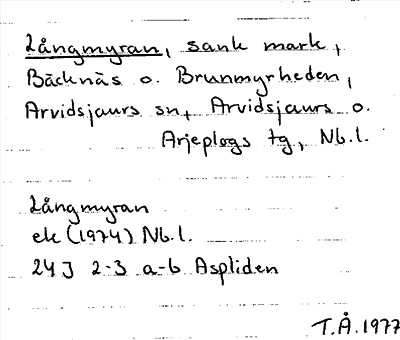 Långmyran, sank mark,
Bäcknäs o. Brunmyrheden,
Arvidsjaurs sn, Arvidsjaurs o.
Arjeplogs tg, Nb.l.
Långmyran
ek (1974) Nb.l.
24J 2-3 a-b Aspliden
T.Å.1977